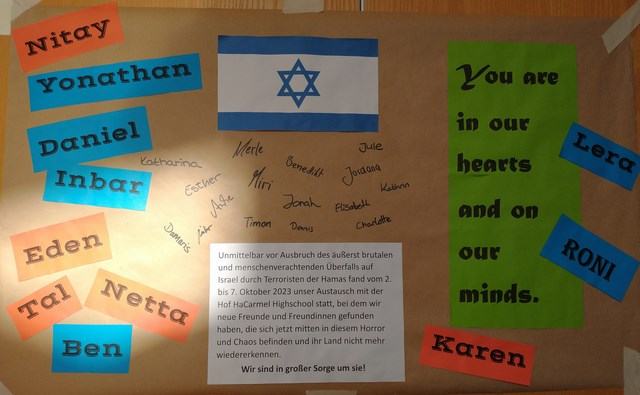 Nitay
Yonathan
Daniel
Inbar
Eden
Tal
Netta
Ben
Merle
Jule
Katharina
Benedikt
Jordana
Esther
Miri
Kathrin
Jonah
Elisabeth
Damaris
Timon
Denis
Charlotte
Unmittelbar vor Ausbruch des äußerst brutalen
und menschenverachtenden Überfalls auf
Israel durch Terroristen der Hamas fand vom 2.
bis 7. Oktober 2023 unser Austausch mit der
Hof HaCarmel Highschool statt, bei dem wir
neue Freunde und Freundinnen gefunden
haben, die sich jetzt mitten in diesem Horror
und Chaos befinden und ihr Land nicht mehr
wiedererkennen.
Wir sind in großer Sorge um sie!
You are
in our
hearts
and on
our
minds.
Lera
RONI
Karen